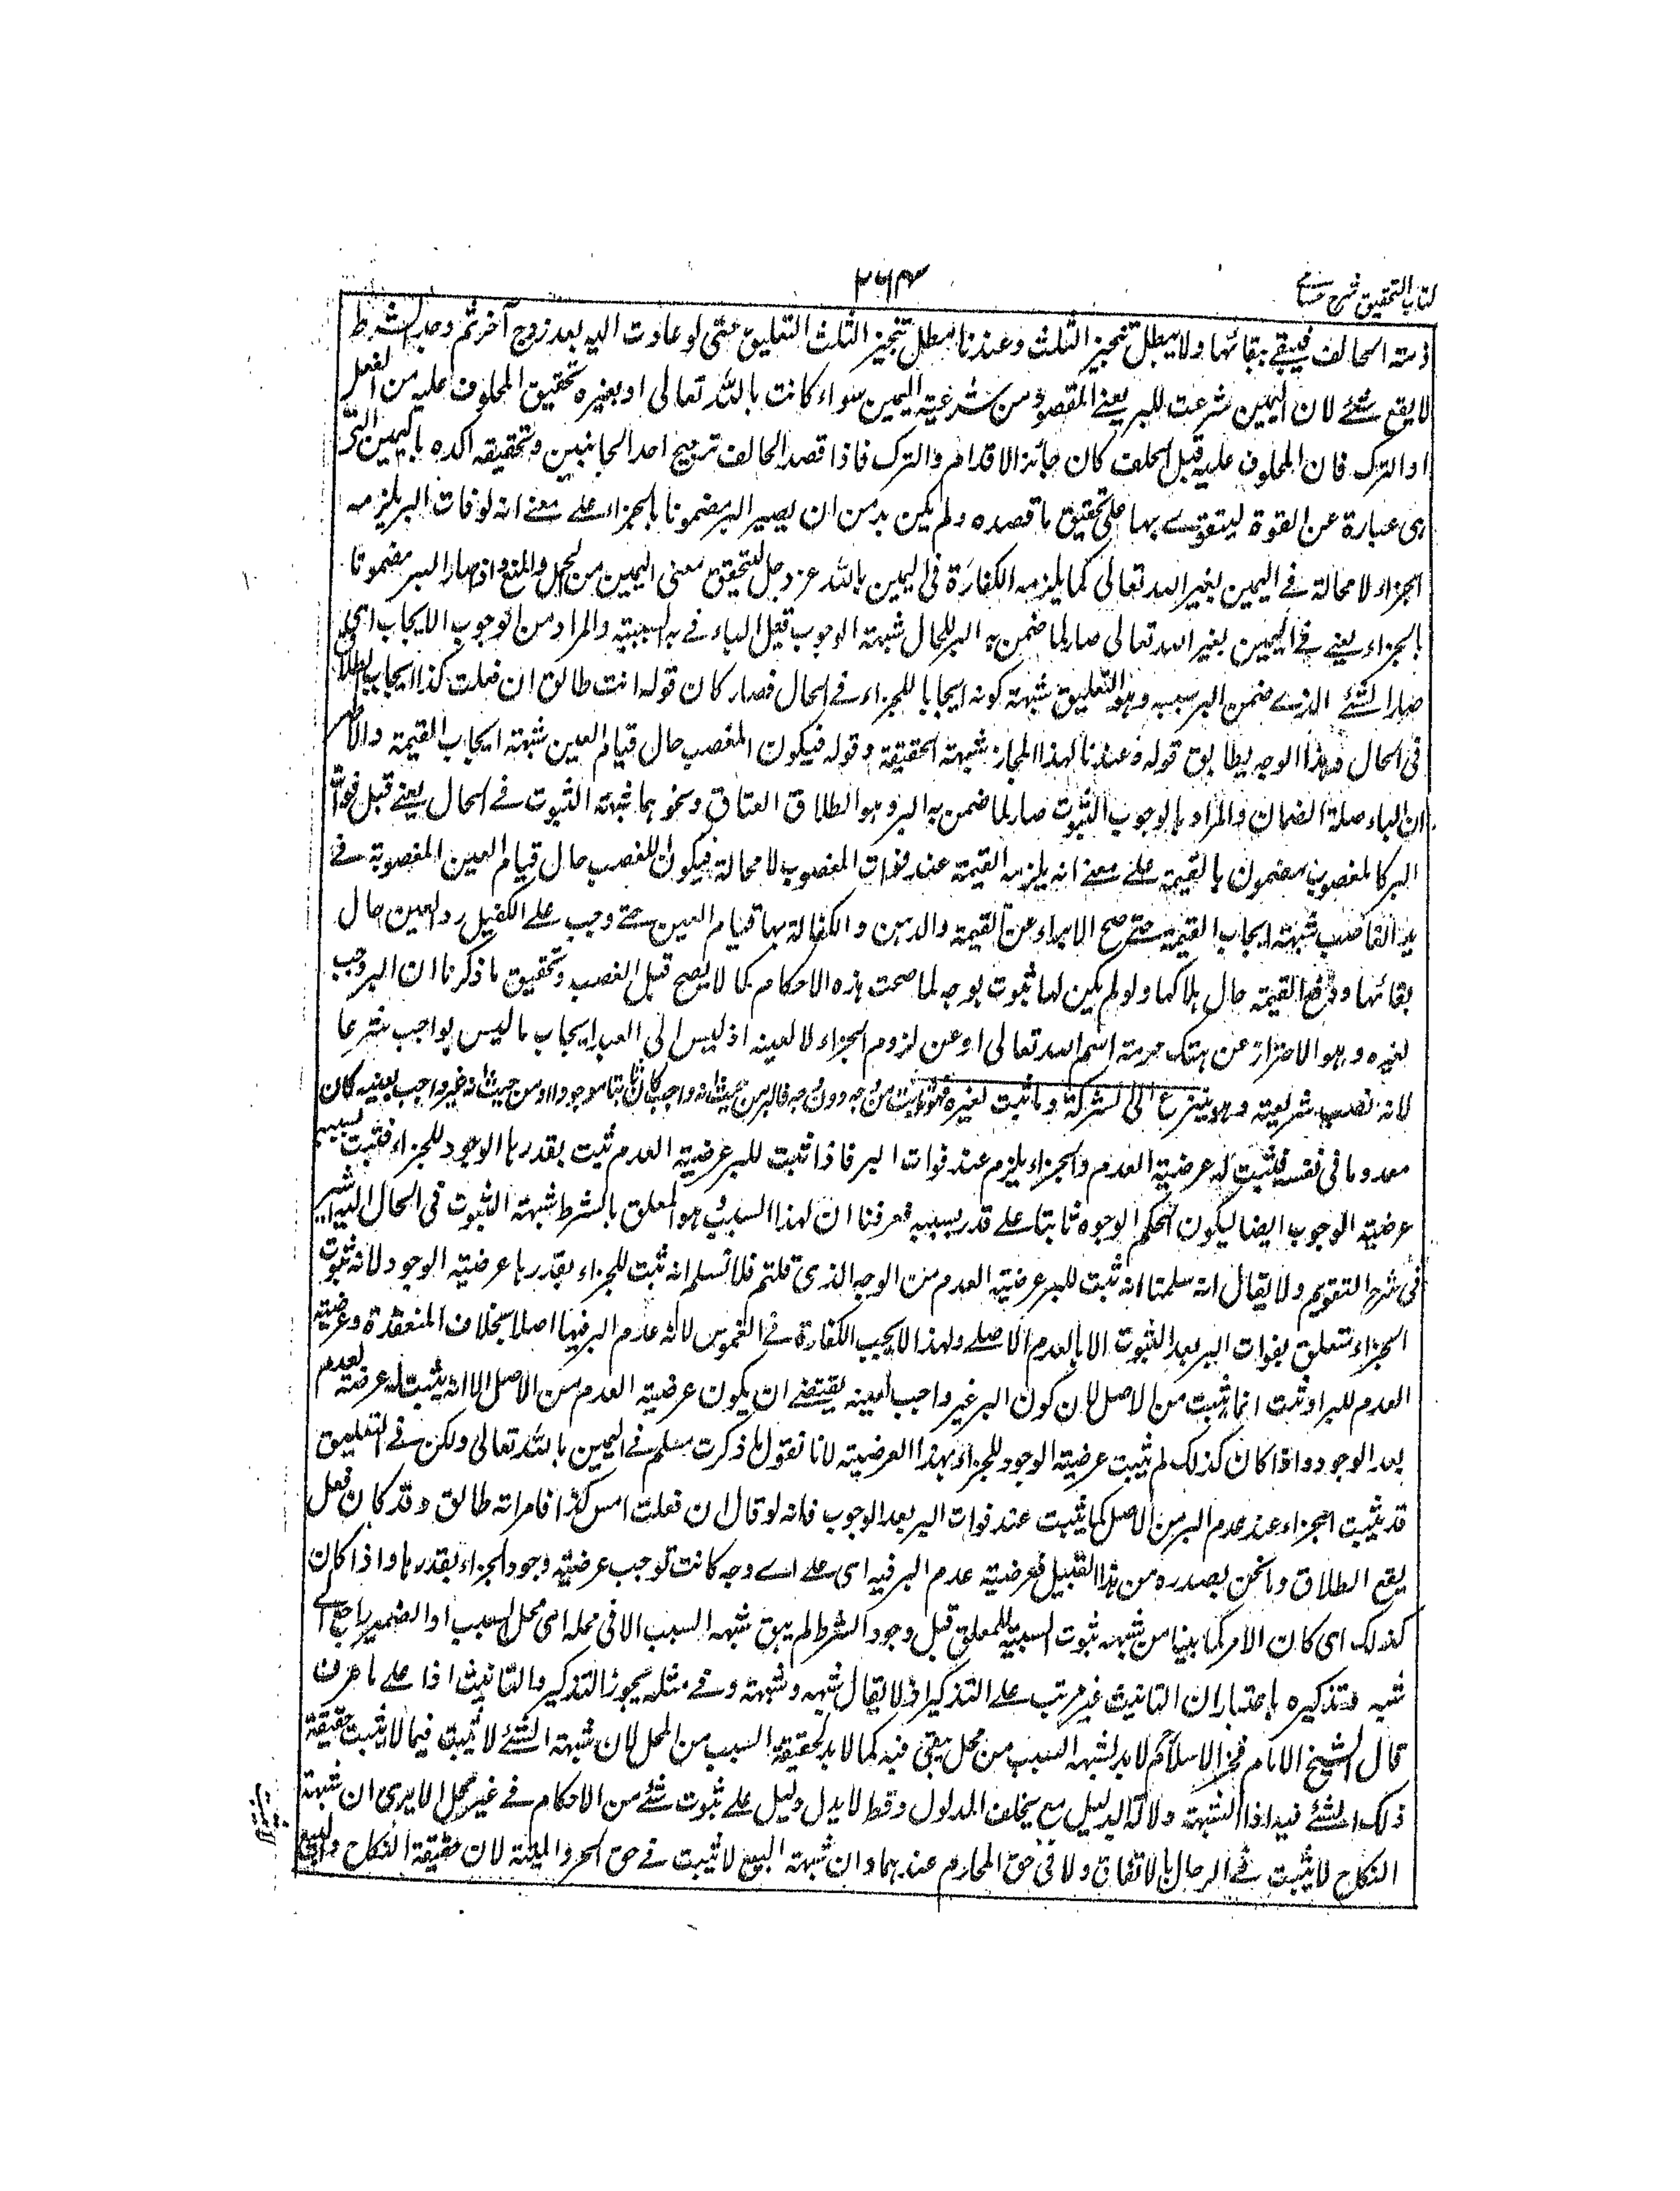 كتاب التحقيق شرح حسامى
٢٦٣
ذمته الحالف فيبقى ببقائها ولا يبطل تنجيز الثلث وعندنا يبطل تنجيز الثلث التعليق حتى لو عادت اليه بعد زوج آخر ثم وجد الشرط
لا يقع شئ لان اليمين شرعت للبر يعنى المقصود من شرعية اليمين سواء كانت بالله تعالى او بغيره تحقيق المحلوف عليه من الفعل
او الترك فان المحلوف عليه قبل الحلف كان جائز الاقدام والترك فاذا قصد الحالف ترجيح احد الجانبين وتحقيقه اكده باليمين التى
هى عبارة عن القوة ليتقوى بها على تحقيق ما قصده ولم يكن بد من ان يصير البر مضمونا بالجزاء على معنى انه لو فات البر يلزمه
الجزاء لا محالة فى اليمين بغير الله تعالى كما يلزمه الكفارة فى اليمين بالله عز وجل لتحقيق معنى اليمين من الحمل والمنع واذا صار البر مضمونا
بالجزاء يعنى فى اليمين بغير الله تعالى صار لما ضمن به البر للحال شبهة الوجوب قيل الباء فى به لسببية والمراد من الوجوب الايجاب اى
صار الشئ الذى ضمن البر بسببه وهو التعليق شبهة كونه ايجابا للجزاء فى الحال فصار كان قوله انت طالق ان فعلت كذا ايجاب الطلاق
فى الحال وهذا الوجه يطابق قوله وعندنا لهذا المجاز شبهة الحقيقة وقوله فيكون المغصب حال قيام العين شبهة ايجاب القيمة والاظهر
ان الباء صلة الضمان والمراد بالوجوب الثبوت صار لما ضمن به البر وهو الطلاق العتاق ونحوهما شبهة الثبوت فى الحال يعنى قبل فوات
البر كالمغصوب مضمون بالقيمة على معنى انه يلزمه القيمة عند فوات المغصوب لا محالة فيكون للغصب حال قيام العين المغصوبة فى
يد الغاصب شبهة ايجاب القيمة حتى صح الابراء عن القيمة والرهن والكفالة بها قيام العين حتى وجب على الكفيل رد العين حال
بقائها ودفع القيمة حال هلاكها ولو لم يكن لها ثبوت بوجه لما صحت هذه الاحكام كما لا يصح قبل الغصب وتحقيق ما ذكرنا ان البر وجب
لغيره وهو الاحتراز عن هتك حرمة اسم الله تعالى او عن لزوم الجزاء لا لعينه اذ ليس الى العبد ايجاب ما ليس بواجب شرعا
لانه نصب شريعة وهو ينزع الى الشركة وما ثبت لغيره فهو ثابت من وجه دون وجه فالبر من حيث انه واجب كان ثابتا موجودا ومن حيث انه غير واجب بعينه كان
معدوما فى نفسه فيثبت له عرضية العدم والجزاء يلزم عند فوات البر فاذا ثبت للبر عرضية العدم ثبت بقدرها الوجود للجزاء فثبت لسببه
عرضية الوجوب ايضا ليكون الحكم الوجوه ثابتا على قدر بسببه فعرفنا ان لهذا السبب وهو المعلق بالشرط شبهة الثبوت فى الحال اليه اشير
فى شرح التقويم ولا يقال انه سلمنا انه ثبت للبر عرضية العدم من الوجه الذى قلتم فلا نسلم انه ثبت للجزاء بقدرها عرضية الوجود لانه ثبوت
الجزاء متعلق بفوات البر بعد الثبوت الا بالعدم الاصلى ولهذا لا يجب الكفارة فى الغموس لانه عدم البر فيها اصلا بخلاف المنعقدة وعرضية
العدم للبر او ثبت انما يثبت من الاصل لان كون البر غير واجب لعينه يقتضى ان يكون عرضية العدم من الاصل الا انه يثبت له عرضة العدم
بعد الوجود واذا كان كذلك لم يثبت عرضية الوجود للجزاء بهذا العرضية لانا نقول ما ذكرت مسلم فى اليمين بالله تعالى ولكن فى التعليق
قد يثبت الجزاء عند عدم البر من الاصل كما يثبت عند فوات البر بعد الوجوب فانه لو قال ان فعلت امس كذا فامراته طالق وقد كان فعل
يقع الطلاق وما نحن بصدره من هذا القبيل فعرضية عدم البر فيه اى على اى وجه كانت توجب عرضية وجود الجزاء بقدرها واذا كان
كذلك اى كان الامر كما بينا من شبهة ثبوت السببية للمعلق قبل وجود الشرط لم يبق شبهه السبب الا فى محله اى محل السبب او الضمير راجع الى
شبه فتذكيره باعتبار ان التانيث غير مرتب على التذكير اذ لا يقال شبهه وشبهة وفى مثله يجوز التذكير والتانيث اذا على ما عرف
قال الشيخ الامام فخر الاسلام لا بد لشبهه السبب من محل يبقى فيه كما لا بد لحقيقة السبب من المحل لان شبهة الشئ لا تثبت فيما لا يثبت حقيقة
ذلك الشئ فيه اذا الشبهة دلالة الدليل مع تخلف المدلول وقط لا يدل دليل على ثبوت شئ من الاحكام فى غير محل الا يرى ان شبهة
النكاح لا يثبت فى الرجال بالاتفاق ولا فى حق المحارم عندهما وان شبهة البيع لا تثبت فى حق الحر والميتة لان حقيقة النكاح والبيع